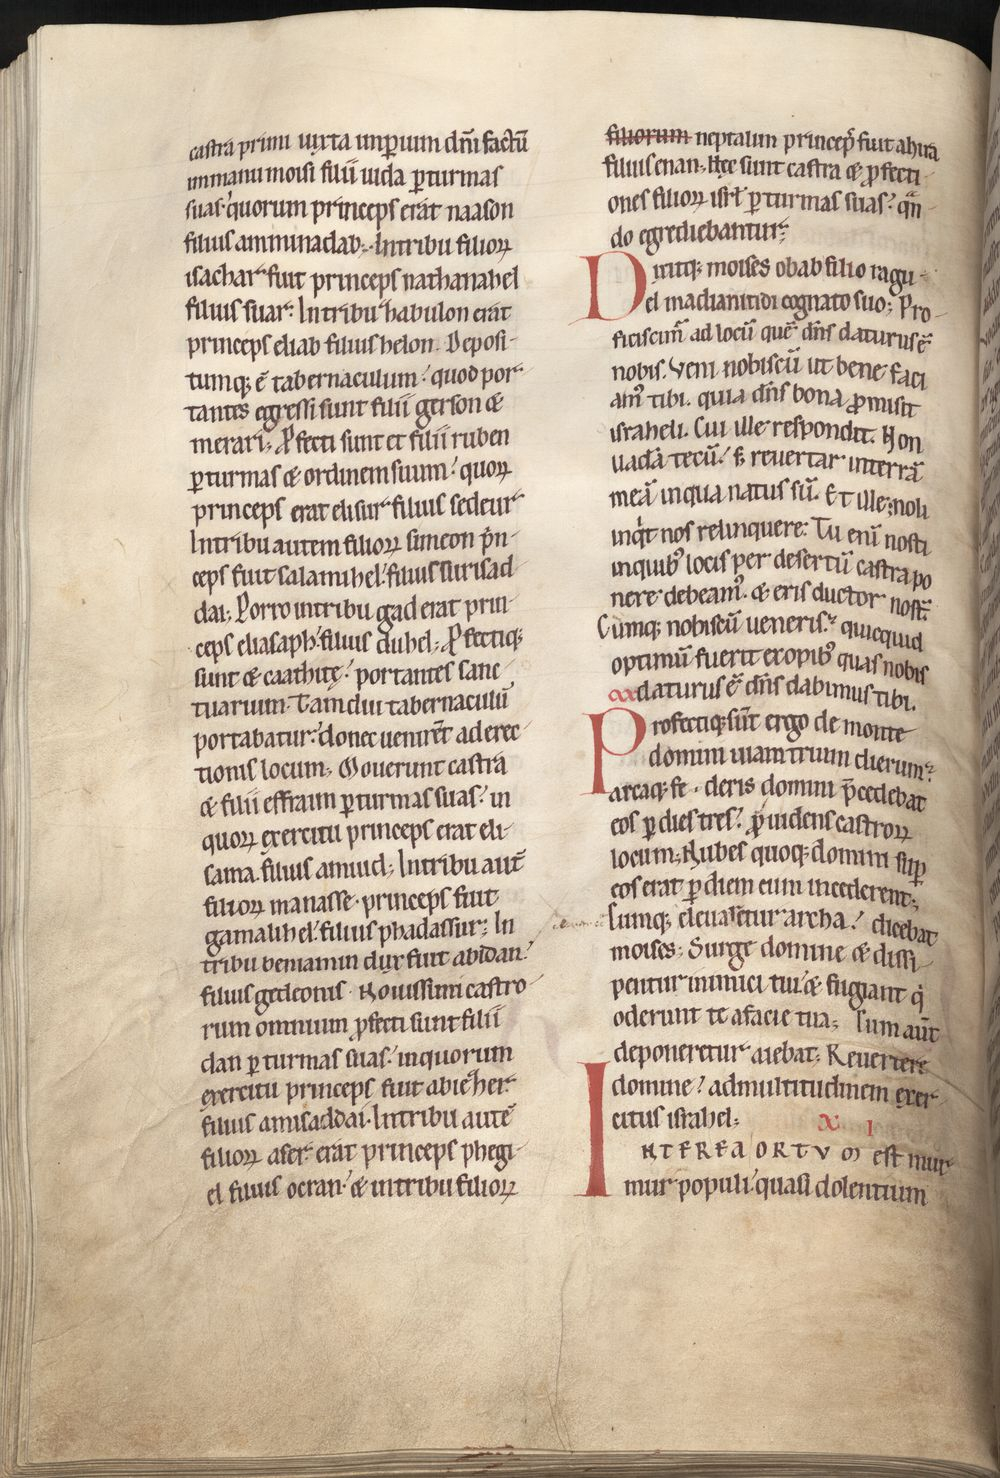 castra primi iuxta imperium dñi factũ
in manu moisi filii iuda ꝑ turmas
suas. quorum princeps erat naason
filius amminadab; In tribu filioꝝ
isachar fuit princeps nathanahel
filius suar. In tribu habulon erat
princeps eliab filius helon. Deposi-
tumq; ẽ tabernaculum. quod por-
tantes egressi sunt filii gerson &
merari; Ꝓfecti sunt et filii ruben
ꝑ turmas & ordinem suum. quoꝝ
princeps erat elisur filius sedeur
In tribu autem filioꝝ simeon pⁱn-
ceps fuit salamihel. filius surisad-
dai; Porro in tribu gad erat prin-
ceps eliasaph. filius duhel; Ꝓfectiq;
sunt & caathitę. portantes sanc-
tuarium. Tam diu tabernaculũ
portabatur. donec venirẽt ad erec-
tionis locum; Mouerunt castra
& filii effraim ꝑ turmas suas. in
quoꝝ exercitu princeps erat eli-
sama filius amiud; In tribu autẽ
filioꝝ manasse. princeps fuit
gamalihel. filius phadassur; In
tribu beniamin dux fuit abidan.
filius gedeonis. Nouissimi castro-
rum omnium ꝓfecti sunt filii
dan ꝑ turmas suas. in quorum
exercitu princeps fuit abieher
filius amisaddai. In tribu autẽ
filioꝝ aser erat princeps phegi-
el filius ocran. & in tribu filioꝝ
filiorum neptalim princeps fuit ahira
filius enan; Hęc sunt castra & ꝓfecti-
ones filioꝝ isrl ꝑ turmas suas. qᵃn-
do egrediebantur;
Dixitq; moises obab filio ragu-
el madianitidi cognato suo; Pro-
ficiscim̃ ad locũ quẽ dñs daturus ẽ
nobis. Veni nobiscũ ut bene faci
am᾽ tibi. quia dñs bona ꝓmisit
israheli. Cui ille respondit. Non
uadã tecũ. s; reuertar in terrã
meã in qua natus sũ. Et ille; noli
inqⁱt nos relinquere. Tu enĩ nosti
in quib᾽ locis per desertũ castra po
nere debeam᾽. & eris ductor nost̃.
Cumq; nobiscũ ueneris. quicquid
optimũ fuerit ex opib᾽ quas nobis
daturus ẽ dñs dabimus tibi.
Profectiq; sũt ergo de monte
domini uiam trium dierum.
arcaq; fe deris domini p̃cedebat
eos ꝑ dies tres. ꝓuidens castroꝝ
locum; Nubes quoq; domini suꝑ
eos erat ꝑ diem cum incederent;
Cumq; eleuaretur archa. dicebat
moises; Surge domine & dissi-
pentur inimici tui. & fugiant qⁱ
oderunt te a facie tua; Cum aũt
deponeretur aiebat; Reuertere
domine. ad multitudinem exer-
citus israhel;
XI
INTEREA ORTVM est mur-
mur populi quasi dolentium